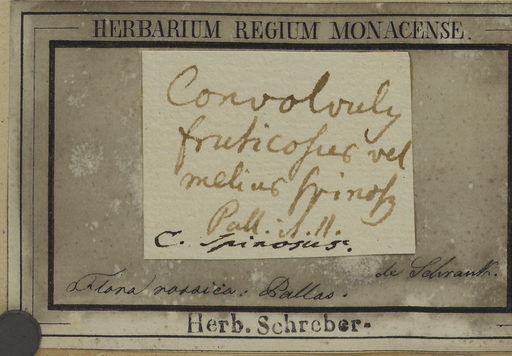 HERBARIUM REGIUM MONACENSE.
Convolvulus
fruticosus vel
melius spinosus
Pall. it. II.
C. spinosus.
de Schrank.
Flora rossica: Pallas.
Herb. Schreber-